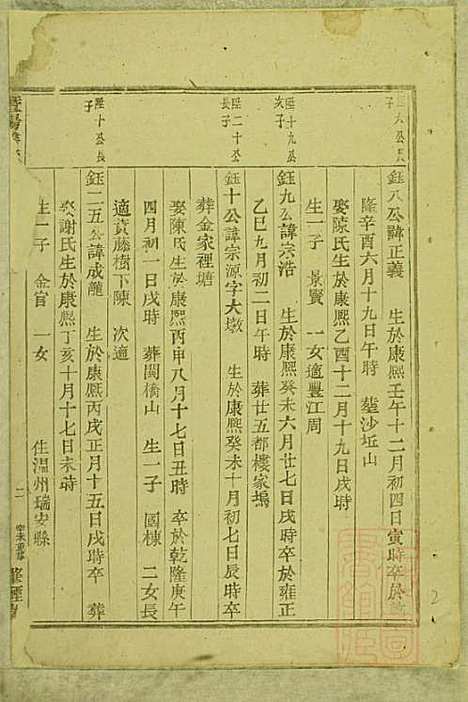 六公長子
鈺八公諱正義　生於康熙壬午十二月初四日寅時卒於乾
隆辛酉六月十九日午時　塟沙坵山
娶陳氏生於康熙乙酉十二月十九日戌時
生一子　景賢　一女適豐江周
陞十九公次子
鈺九公諱宗浩　生於康熙癸未六月廿七日戌時卒於雍正
乙巳九月初二日午時　葬廿五都樓家塢
陞二十公長子
鈺十公諱宗源字大墩　生於康熙癸未十月初七日辰時卒
葬金家裡塘
娶陳氏生於康熙丙申八月十七日丑時　卒於乾隆庚午
四月初一日戌時　葬閣橋山　生一子　國棟　二女長
適賁藤樹下陳　次適
陞十公長子
鈺二五公諱成龍　生於康熙丙戌正月十五日戌時卒　葬
娶謝氏生於康熙丁亥十月十七日未時
生一子　金官　一女　住温州瑞安縣
暨陽
二